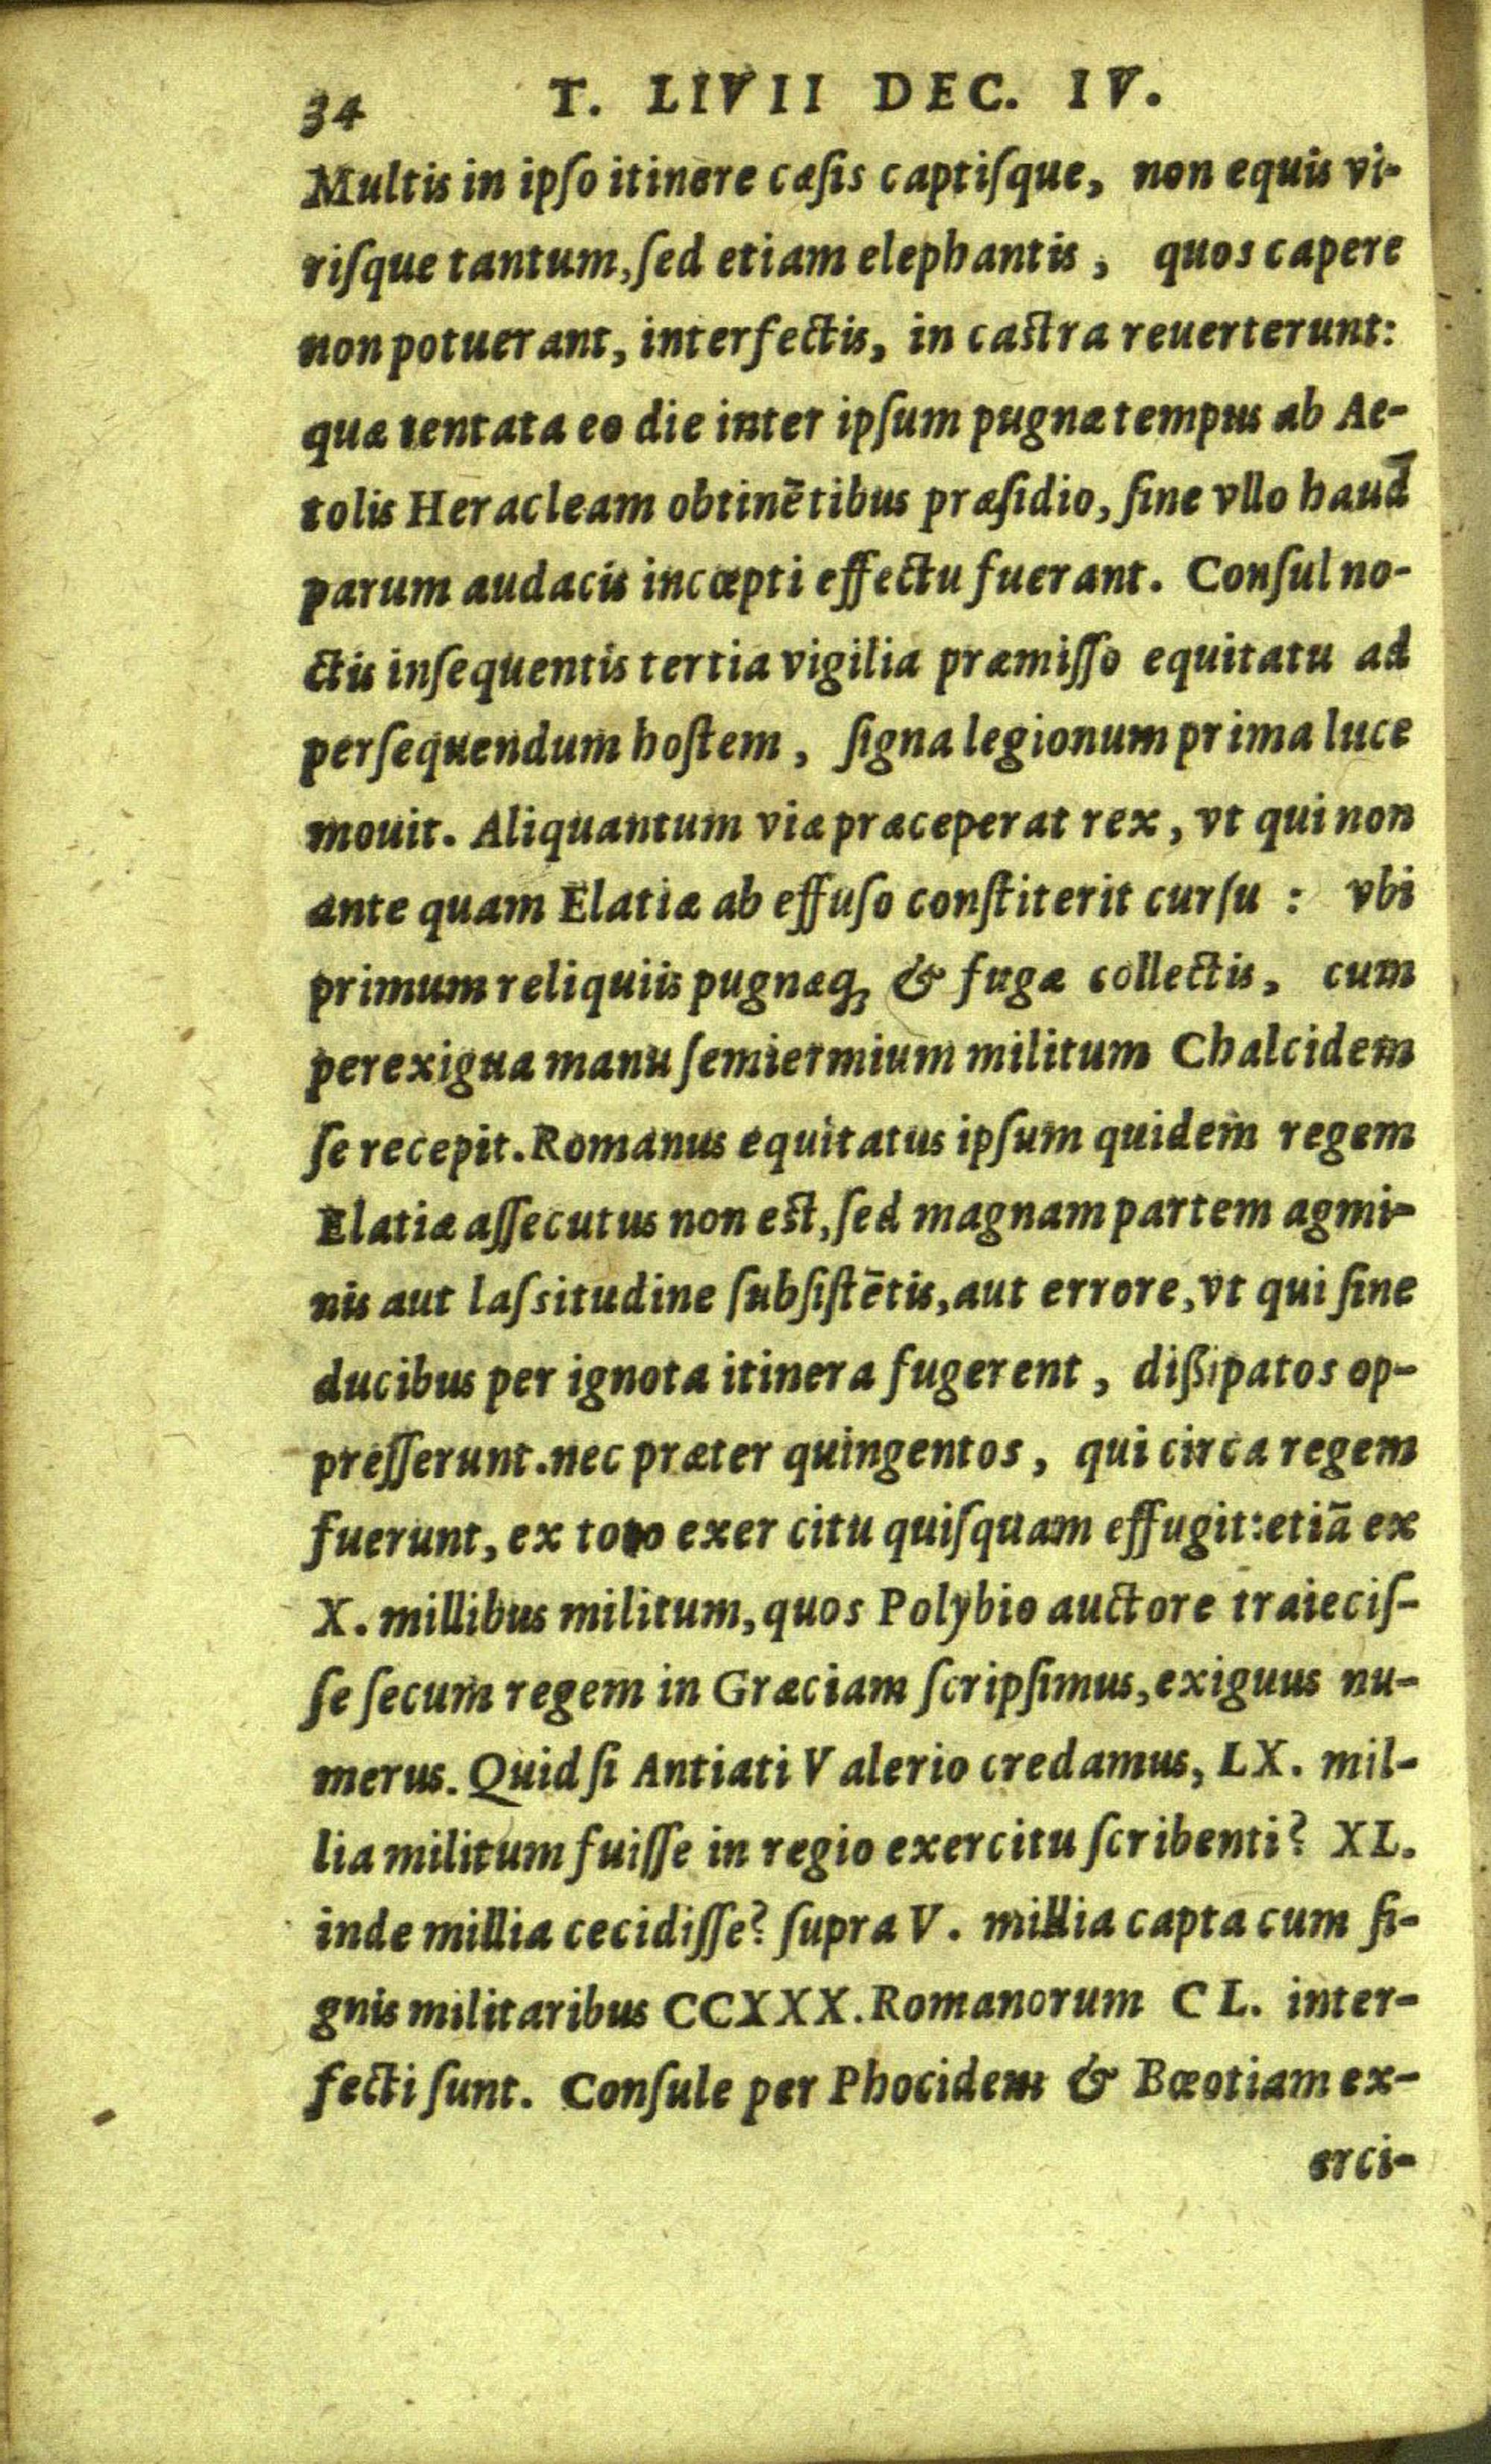 34 T. LIVII DEC. IV.
Multis in ipſo itinere cæſis captiſque, non equis vi-
riſque tantum, ſed etiam elephantis, quos capere
non potuerant, interfectis, in caſtra reuerterunt:
quæ tentata eo die inter ipſum pugnæ tempus ab Ae-
tolis Heracleam obtinētibus præſidio, ſine vllo haud
parum audacis incœpti effectu fuerant. Conſul no-
ctis inſequentis tertia vigilia præmiſſo equitatu ad
perſequendum hoſtem, ſigna legionum prima luce
mouit. Aliquantum viæ præceperat rex, vt qui non
ante quam Elatiæ ab effuſo conſtiterit curſu : vbi
primum reliquiis pugnæq; & fugæ collectis, cum
perexigua manu ſemiermium militum Chalcidem
ſe recepit. Romanus equitatus ipſum quidem regem
Elatiæ aſſecutus non eſt, ſed magnam partem agmi-
nis aut laſsitudine ſubſiſtētis, aut errore, vt qui ſine
ducibus per ignota itinera fugerent, dißipatos op-
preſſerunt. nec præter quingentos, qui circa regem
fuerunt, ex toto exercitu quiſquam effugit: etiā ex
X. millibus militum, quos Polybio auctore traieciſ-
ſe ſecum regem in Græciam ſcripſimus, exiguus nu-
merus. Quid ſi Antiati Valerio credamus, LX. mil-
lia militum fuiſſe in regio exercitu ſcribenti? XL.
inde millia cecidiſſe? ſupra V. millia capta cum ſi-
gnis militaribus CCXXX. Romanorum CL. inter-
fecti ſunt. Conſule per Phocidem & Bœotiam ex-
erci-